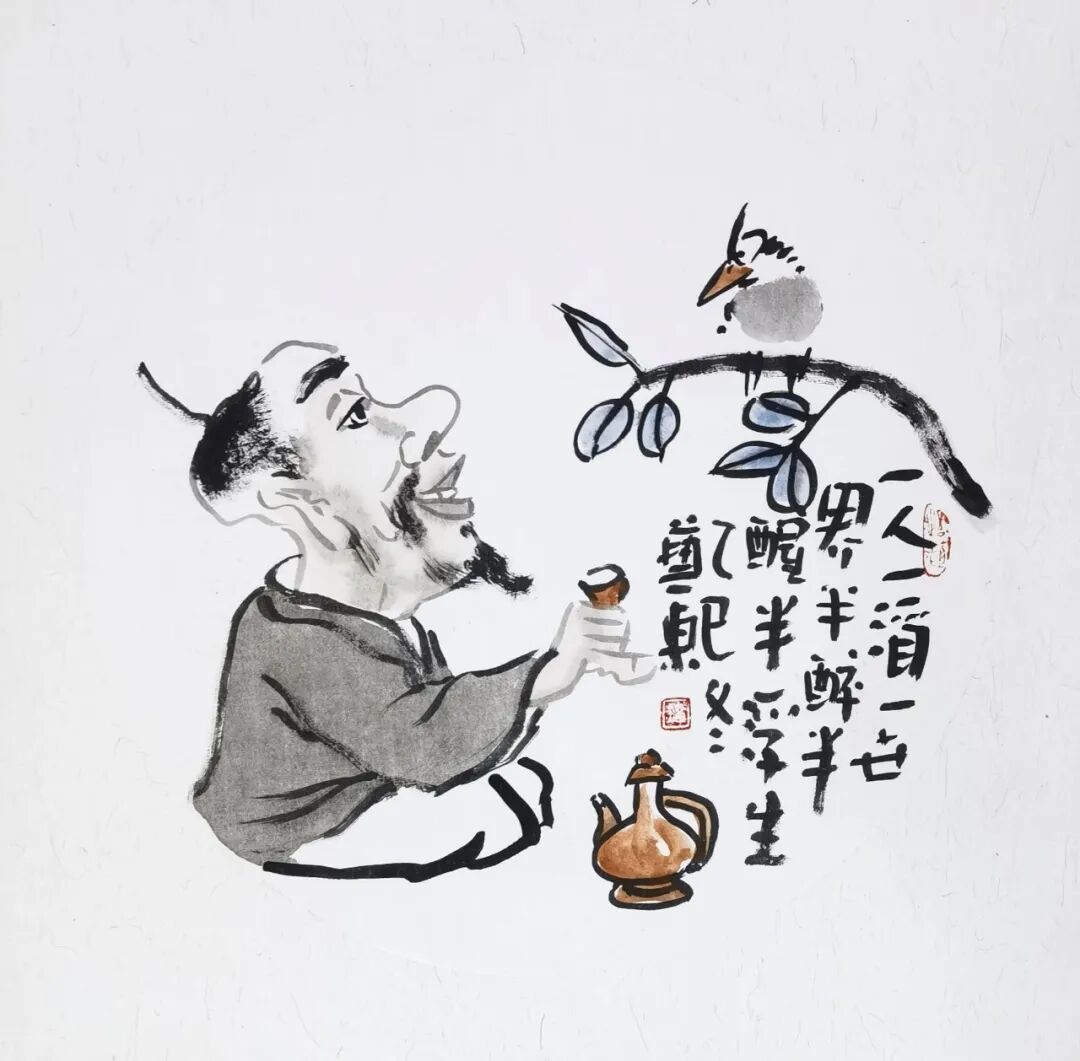 一人一酒一世
界半醉半
醒半浮生
乙巳冬